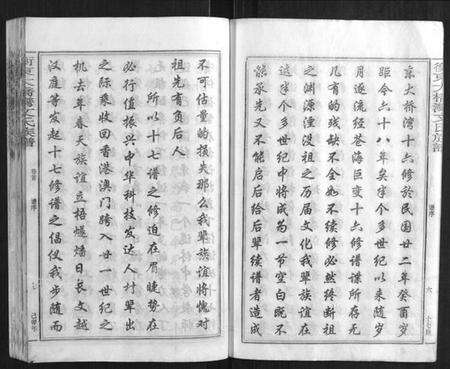 京大桥湾十六修於民国廿二年癸酉岁
距今六十八年矣半个多世纪以来随岁
月逐流经苍海巨变十六修谱谍所存无
几有的残缺不全如不续修必然终断祖
之渊源湮没祖之历届文化我辈族谊在
这半个多世纪中将成为一节空白既不
能承先又不能启后给后辈续谱者造成
谱序
六
不可估量的损失那么我辈族谊将愧对
祖先有负后人
所以十七谱之修迫在眉睫势在
必行值振兴中华科技发达人材辈出
之际乘收回香港澳门跨入廿一世纪之
机去年春天族谊立梧燔日长文越
汉庭等发起十七修谱之倡仪我步随而
卷首
谱序
七